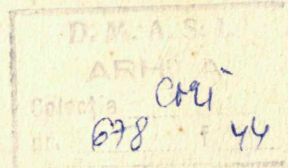 D. M. A. S. I.
ARHIVA
Colecția Cori
nr. 678 f 44